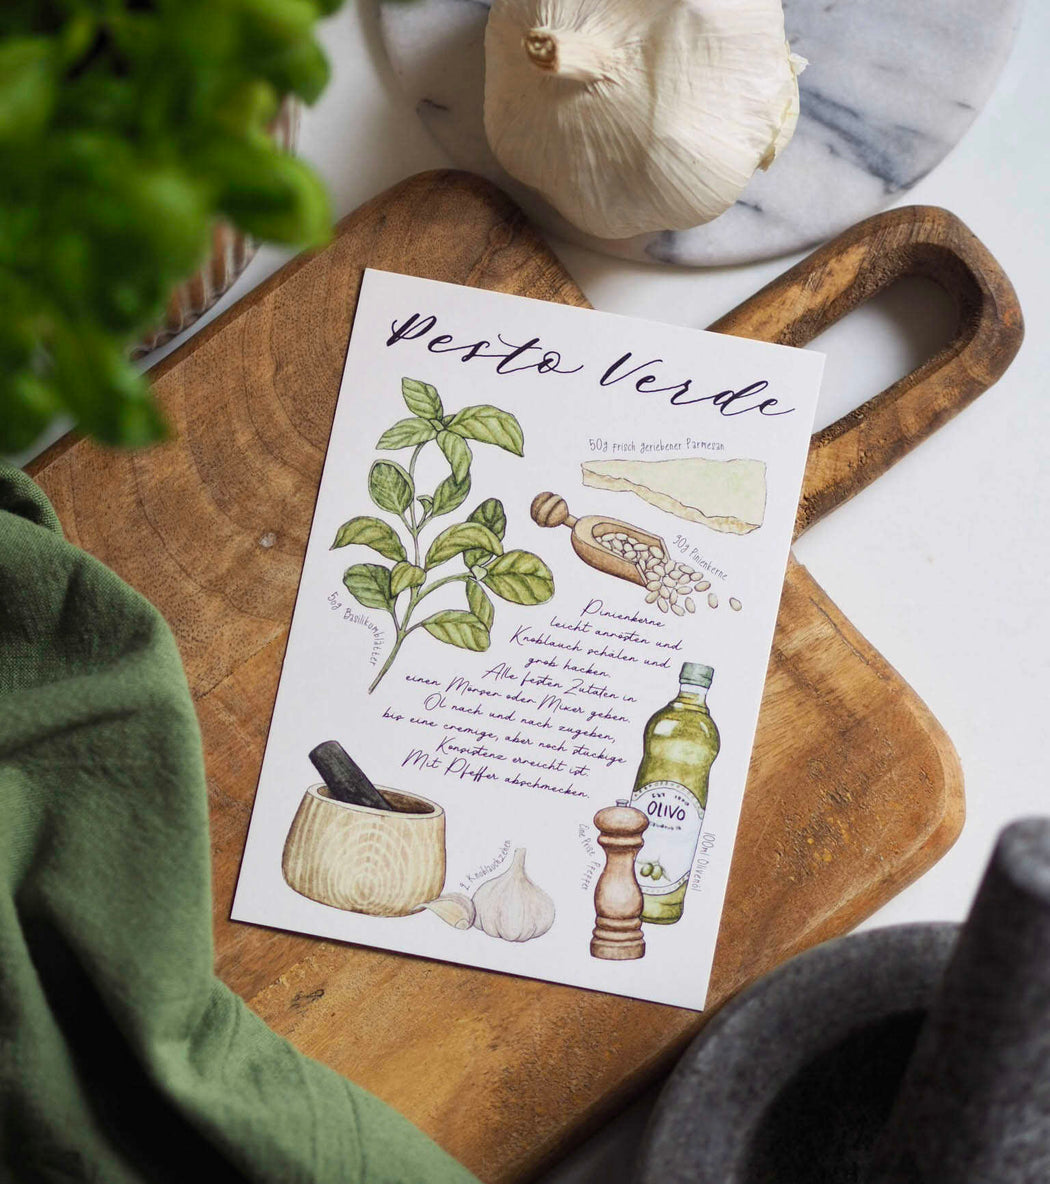 Pesto Verde
50g frisch geriebener Parmesan
30g Pinienkerne
50g Basilikumblätter
Pinienkerne
leicht anrösten und
Knoblauch schälen und
grob hacken.
Alle festen Zutaten in
einen Mörser oder Mixer geben.
Öl nach und nach zugeben,
bis eine cremige, aber noch stückige
Konsistenz erreicht ist.
Mit Pfeffer abschmecken.
OLIVO
100ml Olivenöl
Eine Prise Pfeffer
2 Knoblauchzehen